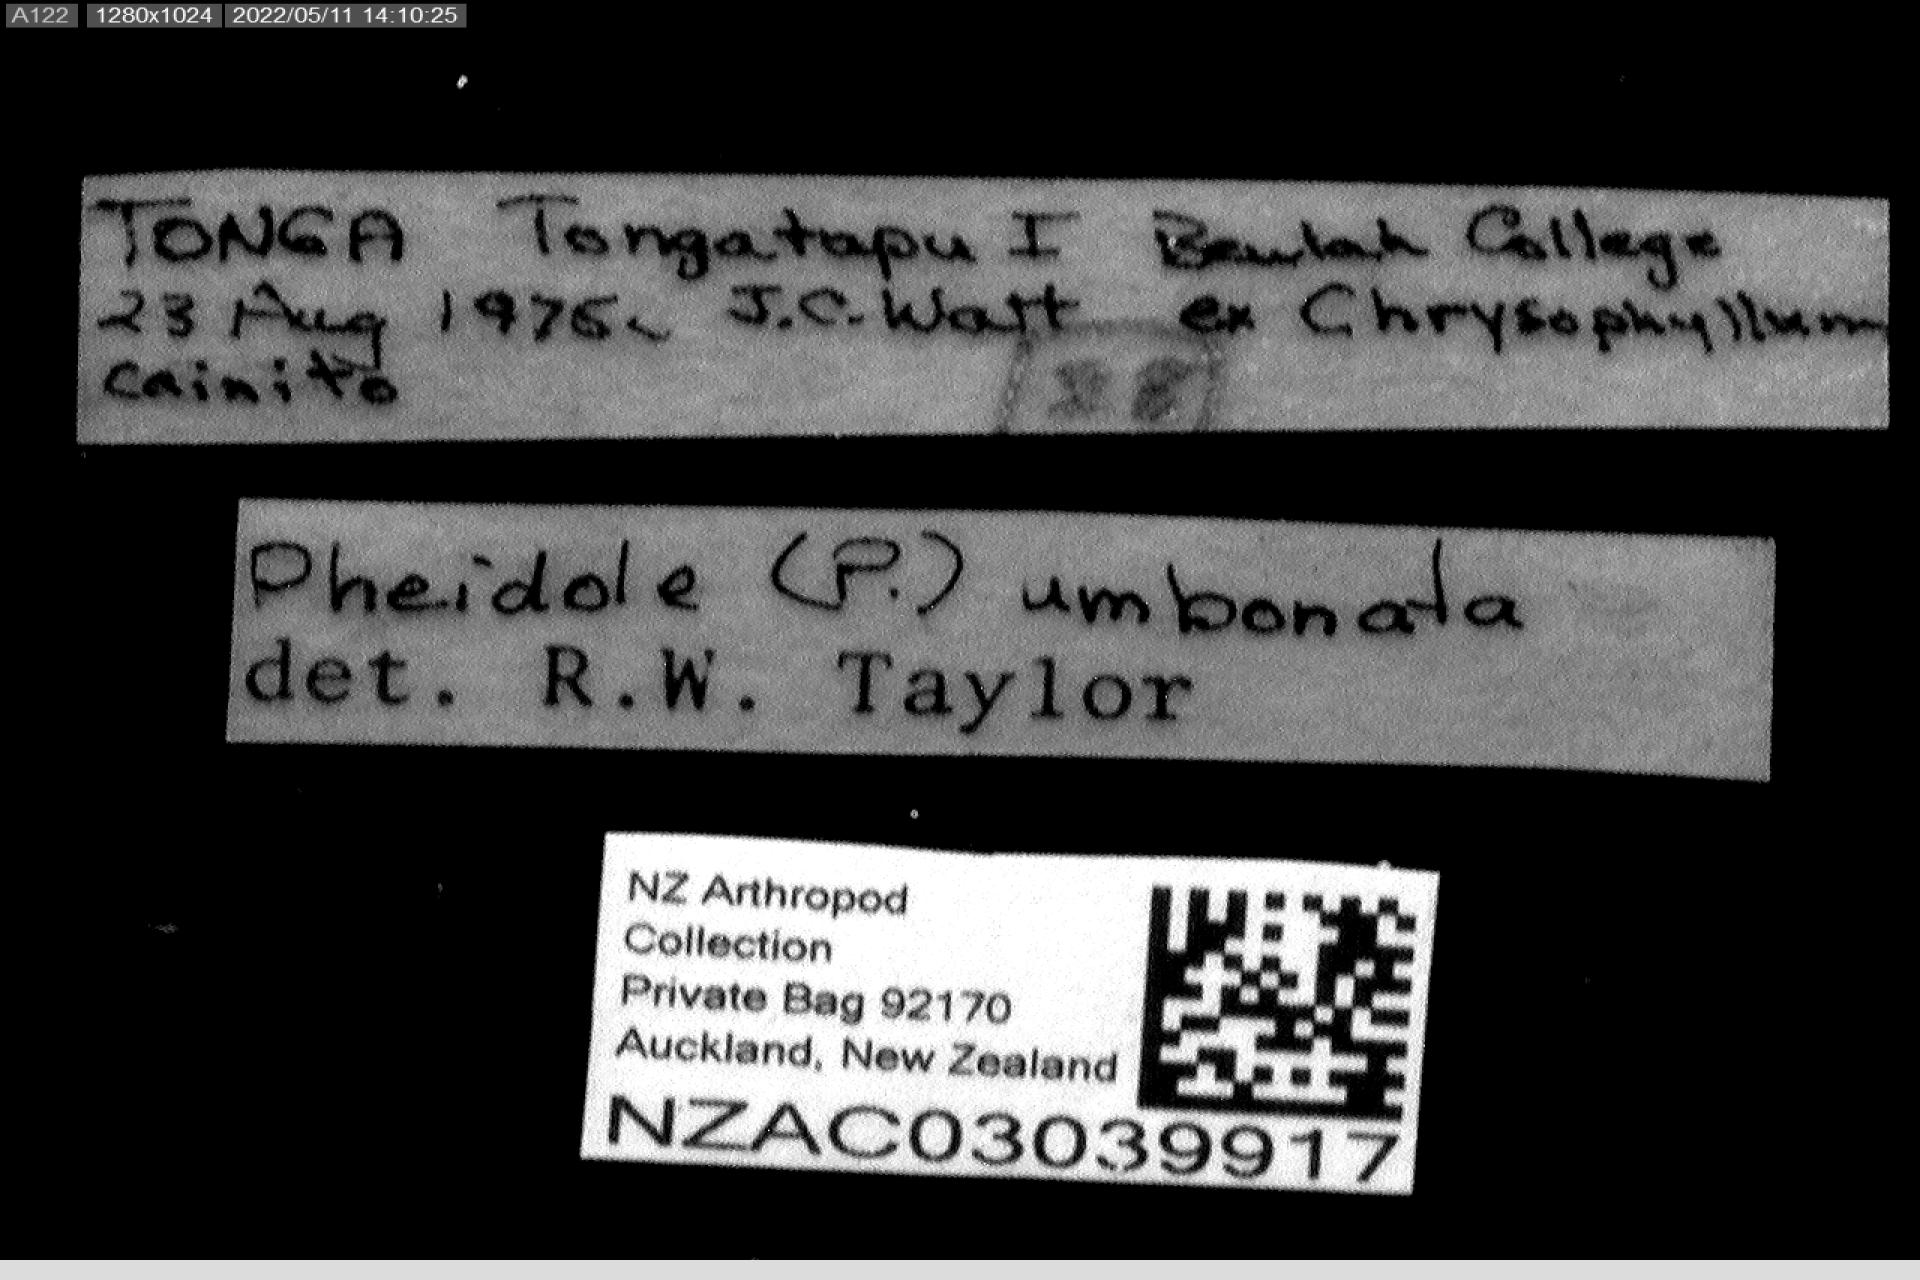 A122 1280x1024 2022/05/11 14:10:25
TONGA Tongatapu I Beulah College
23 Aug 1976 J.C. Watt ex Chrysophyllum
cainito
Pheidole (P.) umbonata
det. R.W. Taylor
NZ Arthropod
Collection
Private Bag 92170
Auckland, New Zealand
NZAC03039917